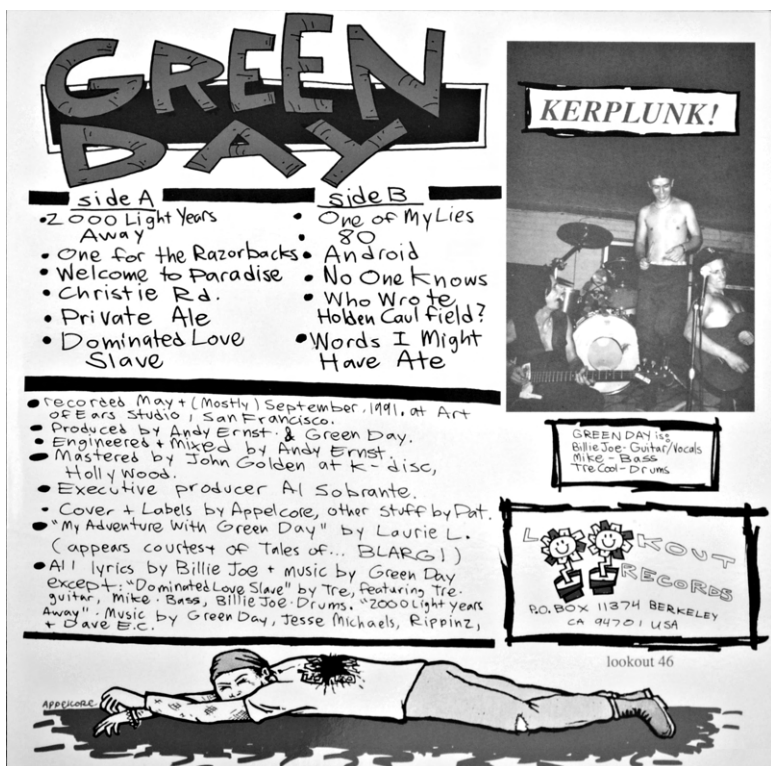 GREEN
DAY
KERPLUNK!
side A
• 2000 Light Years
Away
• One for the Razorbacks
• Welcome to Paradise
• Christie Rd.
• Private Ale
• Dominated Love
Slave
side B
• One of My Lies
• 80
• Android
• No One Knows
• Who Wrote
Holden Caulfield?
• Words I Might
Have Ate
• recorded May + (Mostly) September, 1991, at Art
of Ears Studio, San Francisco.
• Produced by Andy Ernst & Green Day.
• Engineered + Mixed by Andy Ernst.
• Mastered by John Golden at K-disc,
Hollywood.
• Executive producer Al Sobrante.
• Cover + Labels by Appelcore, other stuff by Pat.
• "My Adventure With Green Day" by Laurie L.
(appears courtesy of Tales of... BLARG!)
• All lyrics by Billie Joe + music by Green Day
except: "Dominated Love Slave" by Tre, featuring Tre-
guitar, Mike-Bass, Billie Joe-Drums. "2000 Light years
Away". Music by Green Day, Jesse Michaels, Rippinz,
+ Dave E.C.
GREEN DAY is:
Billie Joe-Guitar/Vocals
Mike - Bass
Tre Cool-Drums
LOOKOUT
RECORDS
P.O. BOX 11374 BERKELEY
CA 94701 USA
lookout 46
APPELCORE